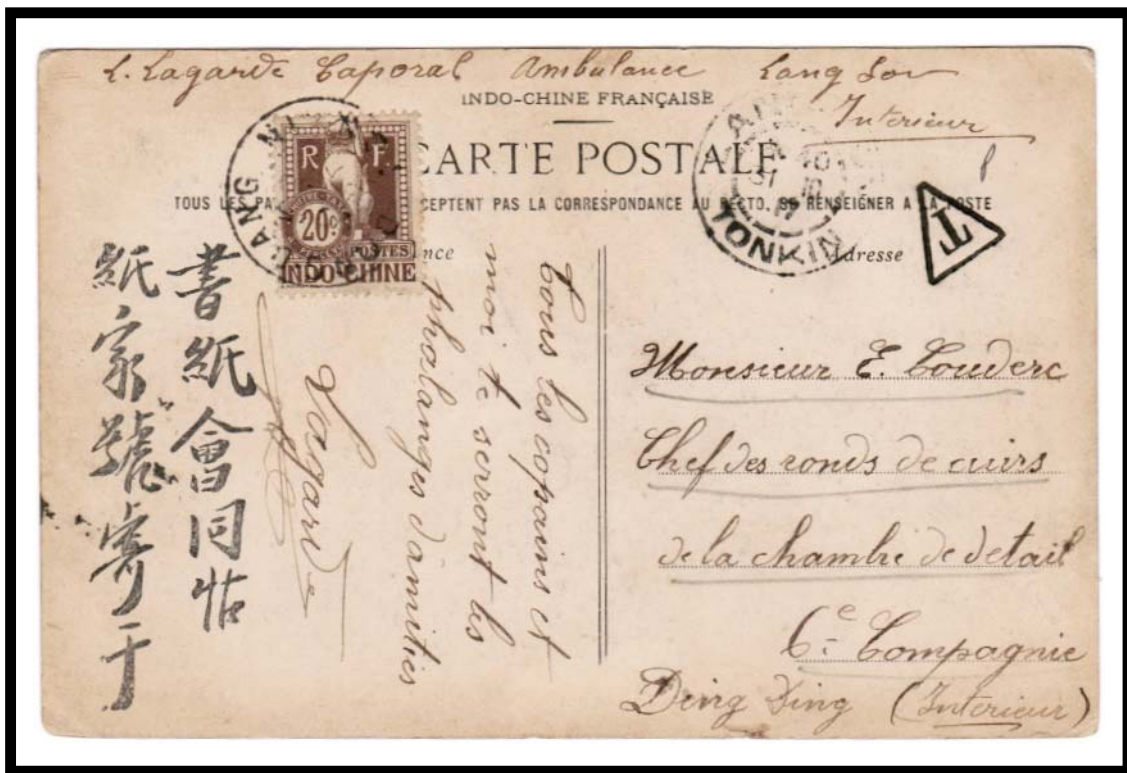 L. Lagarde Caporal Ambulance Lang Son
Interieur
INDO-CHINE FRANÇAISE
CARTE POSTALE
TOUS LES PA CEPTENT PAS LA CORRESPONDANCE AU RECTO, SE RENSEIGNER A LA POSTE
R F
20c
POSTES
INDO-CHINE
TONKIN
T
nce
Tous les copains et
moi te serront les
phalanges d'amitiés
Lagarde
書紙會同帖
紙家號寄于
Adresse
Monsieur E. Couderc
Chef des ronds de cuirs
de la chambre de detail
6e Compagnie
Ding Ding (Interieur)